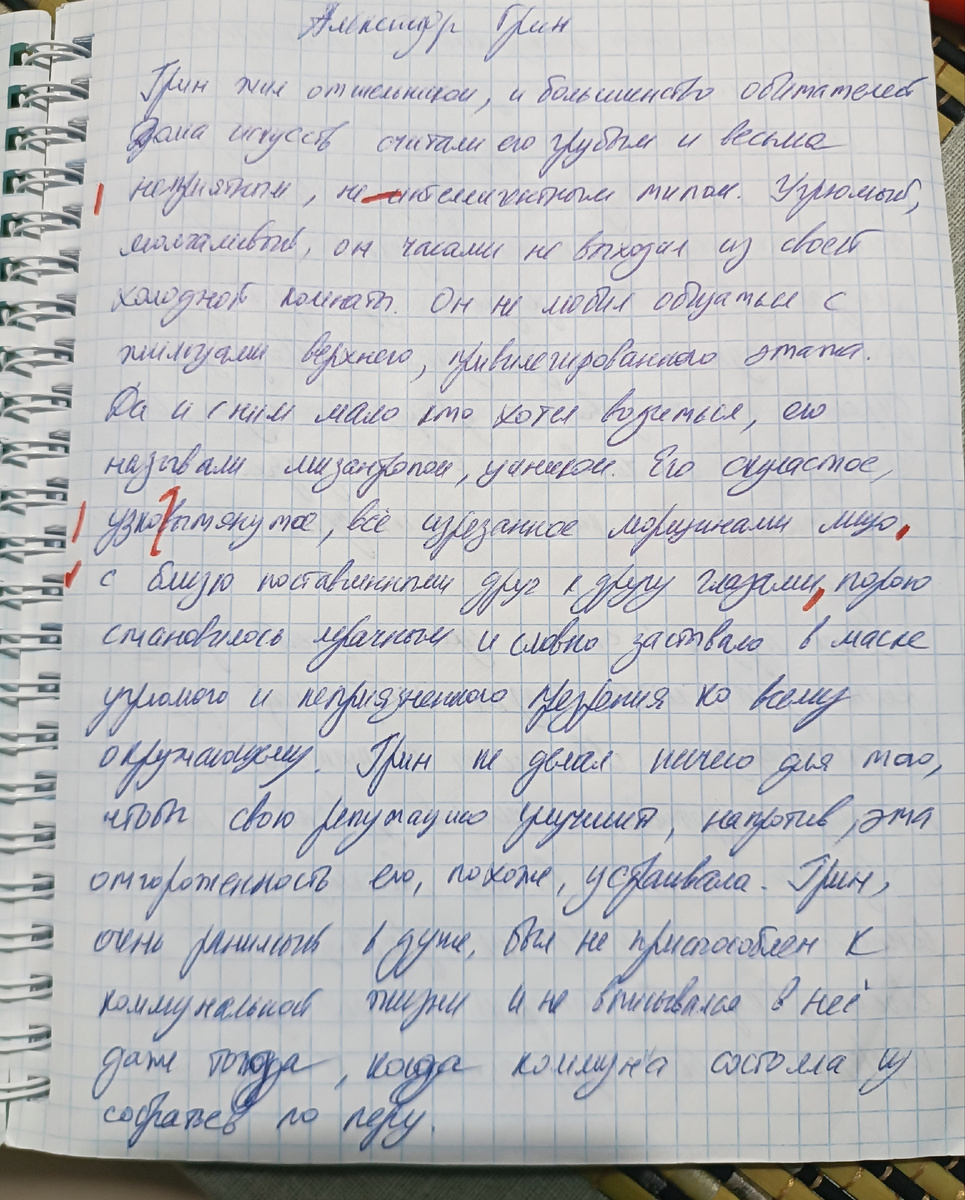 Александр Грин
Грин жил отшельником, и большинство обитателей
Дома искусств считали его грубым и весьма
неприятным, не интеллигентным типом. Угрюмый,
молчаливый, он часами не выходил из своей
холодной комнаты. Он не любил общаться с
жильцами верхнего, привилегированного этажа.
Да и с ним мало кто хотел возиться, его
называли мизантропом, циником. Его скуластое,
узко вытянутое, всё изрезанное морщинами лицо,
с близко поставленными друг к другу глазами, порою
становилось мрачным и словно застывало в маске
угрюмого и неприязненного презрения ко всему
окружающему. Грин не делал ничего для того,
чтобы свою репутацию улучшить, напротив, эта
отгороженность его, похоже, устраивала. Грин,
очень ранимый в душе, был не приспособлен к
коммунальной жизни и не вписывался в неё
даже тогда, когда коммуна состояла из
собратьев по перу.